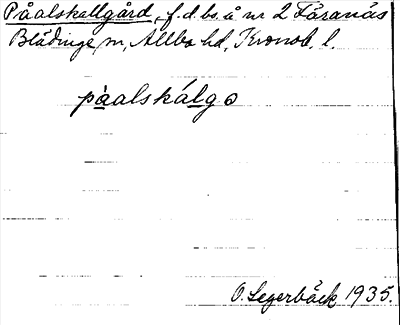 Påalskallgård, f.d. bs. å nr 2 Fåranäs
Blädinge, sn, Allbo hd, Kronob. l.
pàalskálgo
O. Segerbäck 1935.